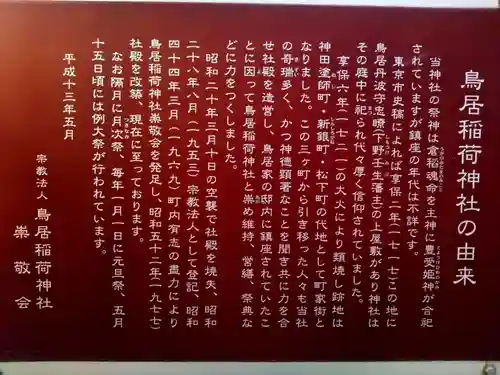 鳥居稲荷神社の由来
当神社の祭神は倉稲魂命を主神に豊受姫神が合祀
されていますが鎮座の年代は不詳です。
東京市史稿によれば享保二年(一七一七)この地に
鳥居丹波守忠瞭(下野壬生藩主)の上屋敷があり神社は
その庭中に祀られ代々厚く信仰されていました。
享保六年(一七二一)の大火により類焼し跡地は
神田塗師町・新銀町・松下町の代地として町家街と
なりました。この三ヶ町から引き移った人々も当社
の奇瑞多く、かつ神徳顕著なことを聞き共に力を合
せ社殿を造営し、鳥居家の邸内に鎮座されていたこ
とに因って鳥居稲荷神社と崇め維持、営繕、祭典な
どに力をつくしました。
昭和二十年三月十日の空襲で社殿を焼失、昭和
二十八年八月(一九五三)宗教法人として登記、昭和
四十四年三月(一九六九)町内有志の盡力により
鳥居稲荷神社崇敬会を発足し、昭和五十二年(一九七七)
社殿を改築、現在に至っております。
なお隔月に月次祭、毎年一月一日に元旦祭、五月
十五日頃には例大祭が行われています。
平成十三年五月
宗教法人 鳥居稲荷神社
崇敬会